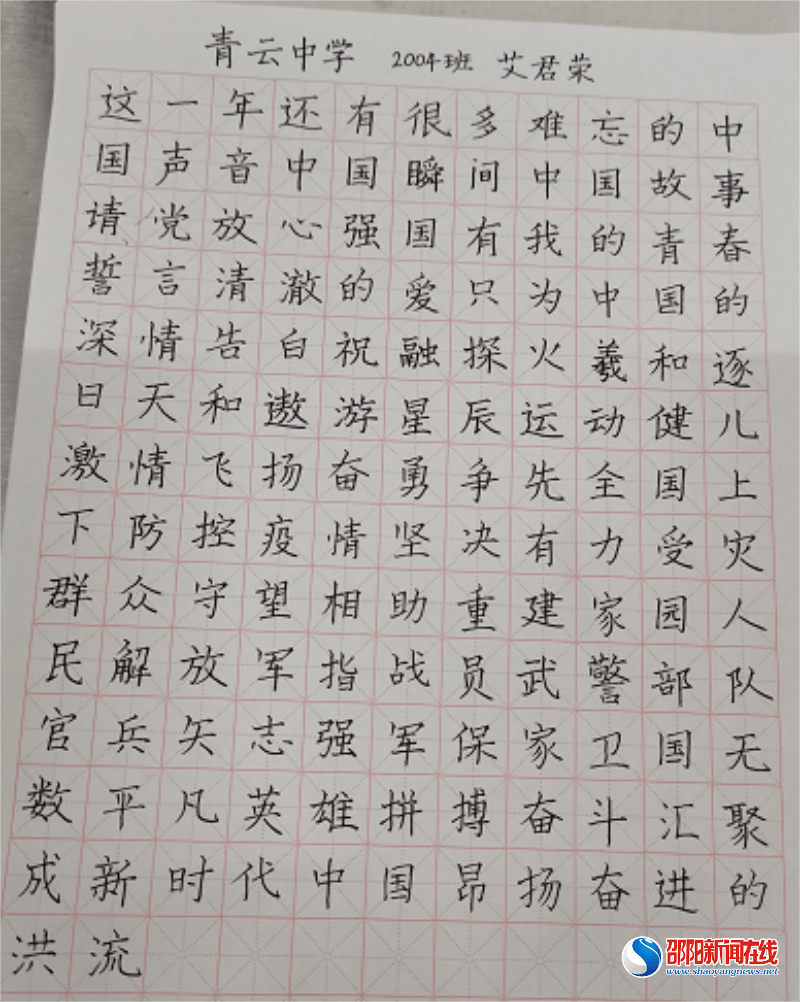 青云中学 2004班 艾君荣
这一年还有很多难忘的中
国声音中国瞬间中国故事
请党放心强国有我的青春
誓言清澈的爱只为中国的
深情告白祝融探火羲和逐
日天和遨游星辰运动健儿
激情飞扬奋勇争先全国上
下防控疫情坚决有力受灾
群众守望相助重建家园人
民解放军指战员武警部队
官兵矢志强军保家卫国无
数平凡英雄拼搏奋斗汇聚
成新时代中国昂扬奋进的
洪流
邵阳新闻在线
www.shaoyangnews.net